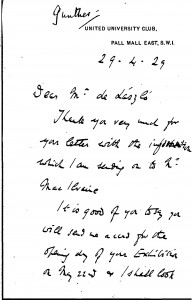 Gunther
UNITED UNIVERSITY CLUB,
PALL MALL EAST, S.W.1.
29-4-29
Dear Mr de László
Thank you very much for
your letter with the information
which I am sending on to Mr
MacIlwaine
It is good of you to say you
will send me a card for the
opening day of your Exhibition
on May 22nd & I shall look